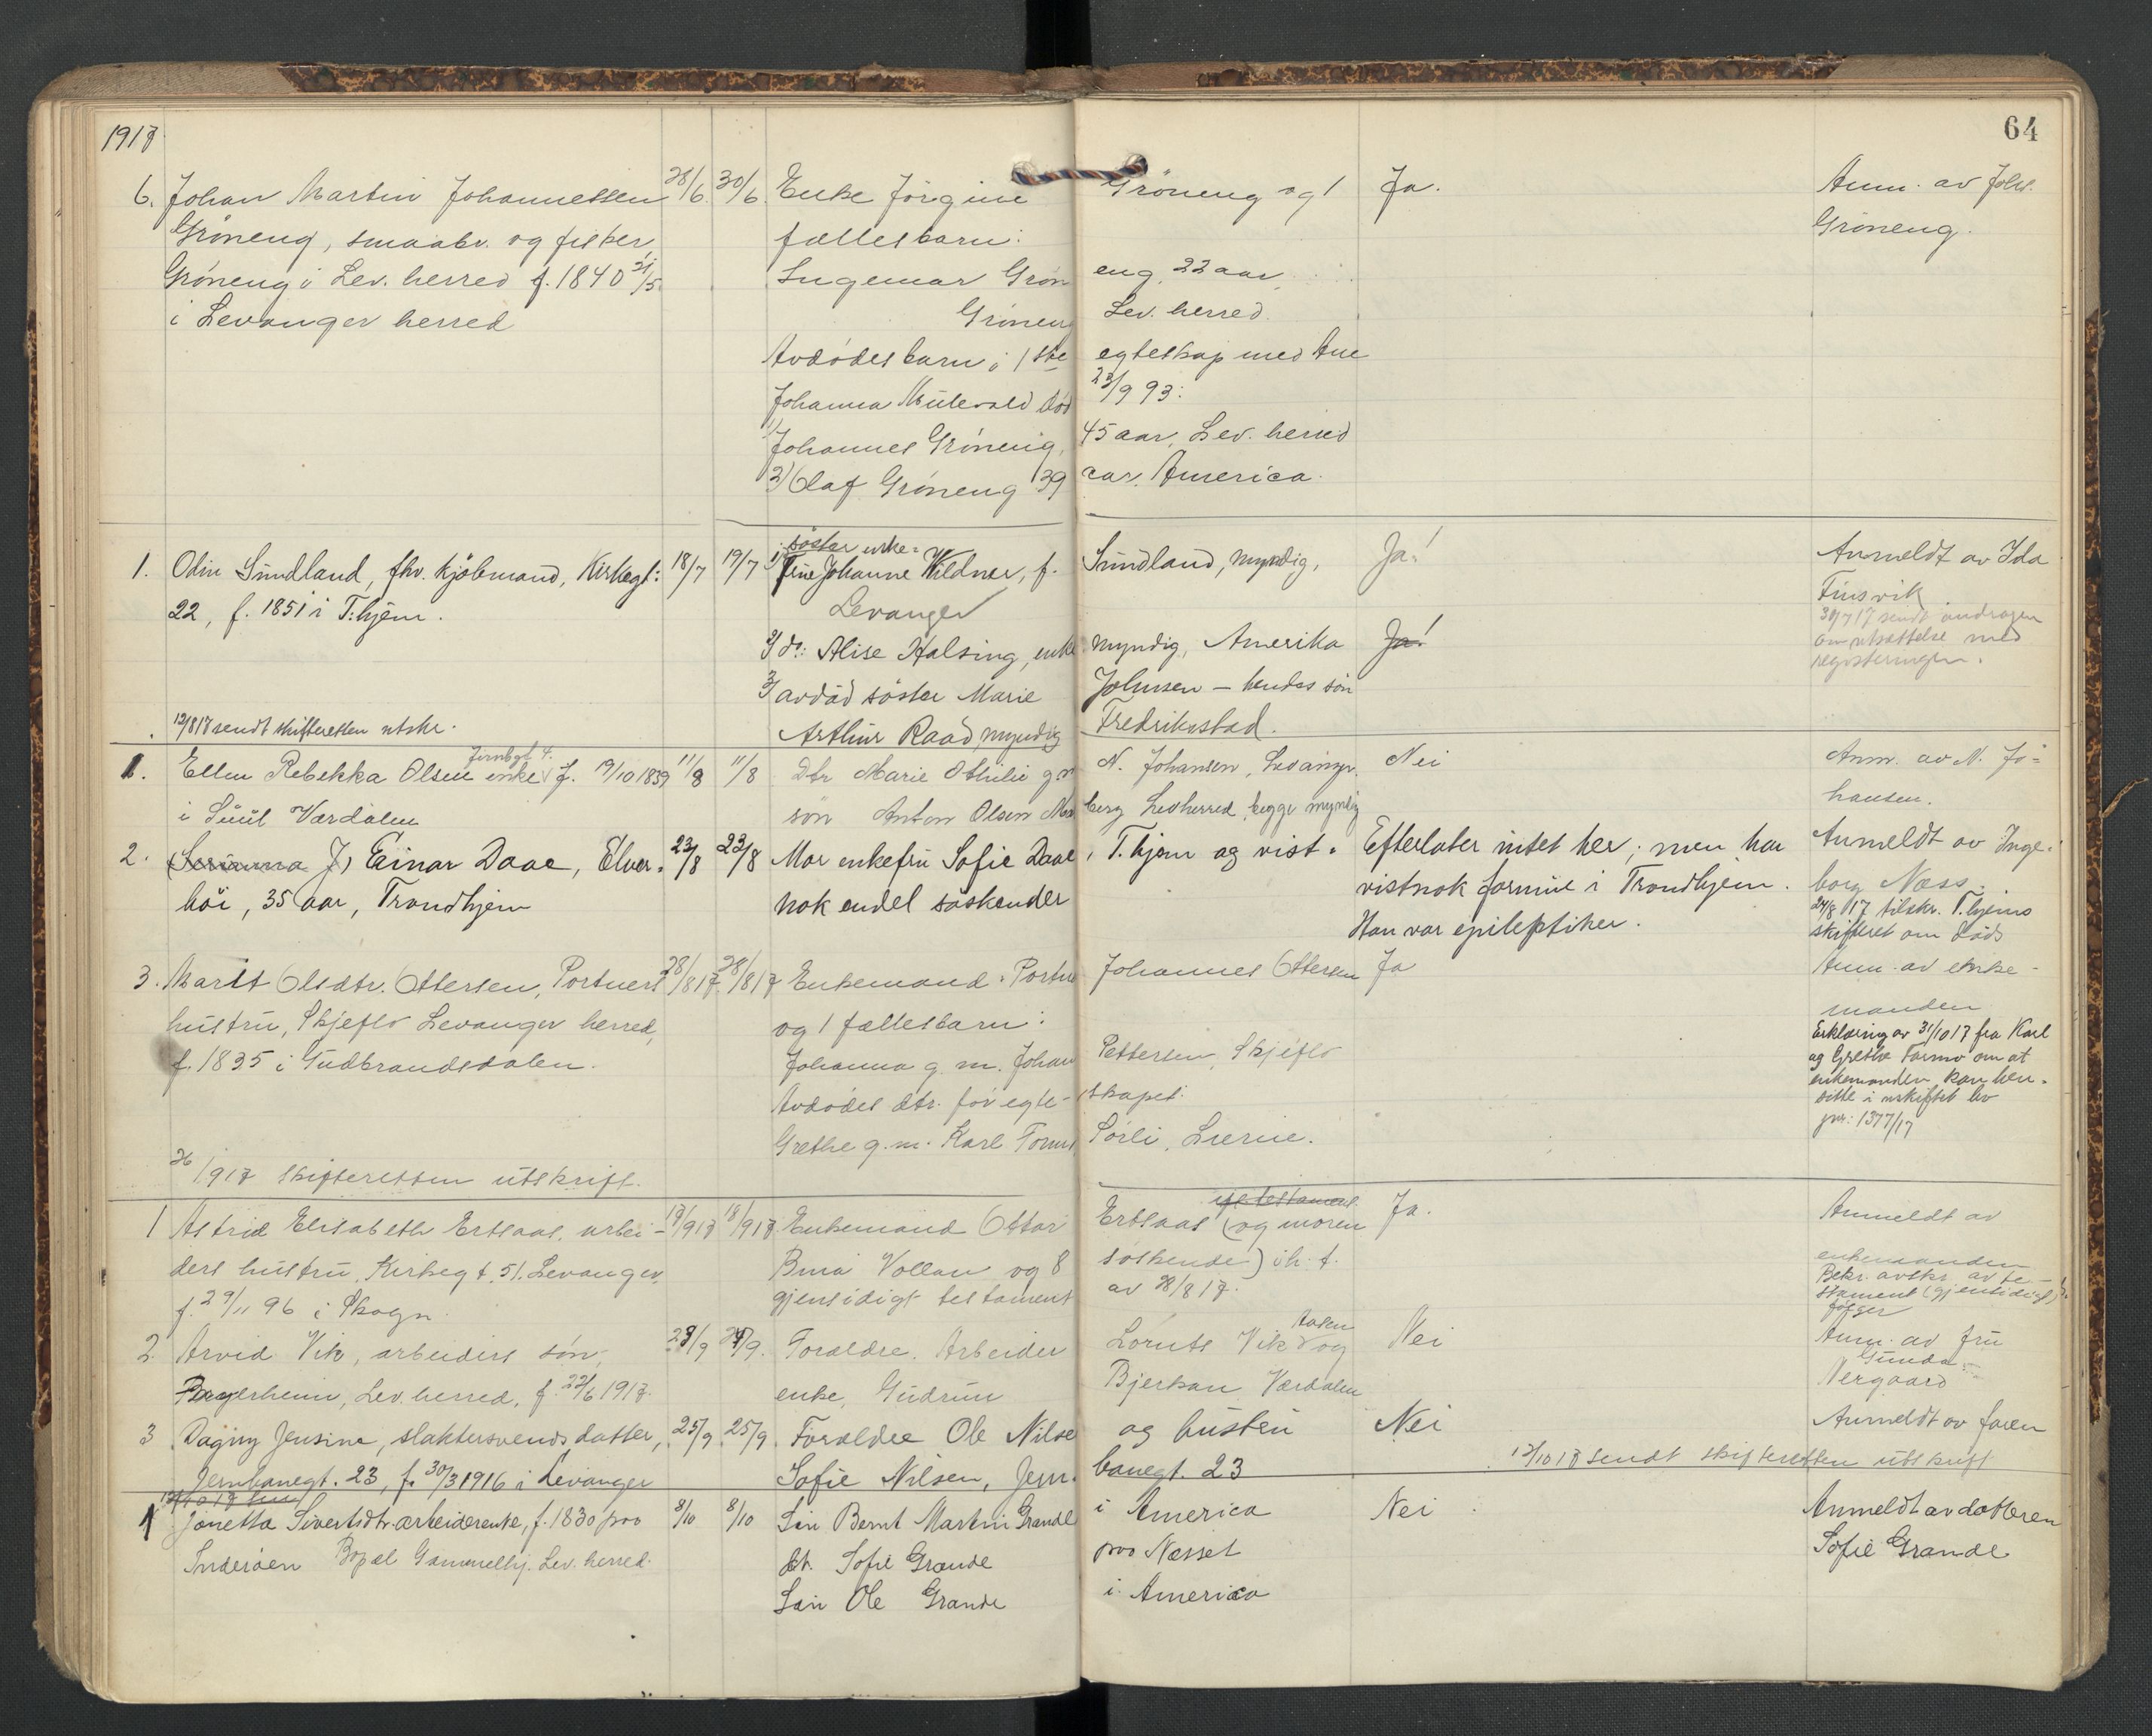 1917
64
6. Johan Martin Johannessen 28/6. 30/6. Enke Jörgine Gröneng og 1 Ja. Anm. av Johs.
Gröneng, smaabr. og fisker fællesbarn: Gröneng.
Gröneng i Lev. herred f. 1840 21/5 Ingemar Grön eng 22 aar
i Levanger herred Gröneng Lev. herred.
Avdødes barn i 1ste egteskap med Ane
Johanna død 23/9 93:
1) Johannes Gröneng, 45 aar, Lev. herred
2) Olaf Gröneng 39 aar, America.
søster enke:
1. Odin Sundland, fhv. kjøbmand, Kirkegt: 18/7 19/7 1/ Johanne Wildner, f. Sundland, myndig, Ja! Anmeldt av Ida
22, f. 1851 i T:hjem. Levanger Finsvik
2/ do: Alise Halsing, enke myndig, Amerika Ja! 30/7 17 sendt andragen
om utsættelse med
registeringen.
3/ avdöd söster Marie Johnsen - hendes sön
12/8 17 sendt skifteretten utskr. Arthur Raad myndig Fredrikstad.
Jernbgt 4.
1. Ellen Rebekka Olsen enke f. 19/10 1839 11/8 11/8 Dtr Marie Othilie g m N. Johansen, Levanger. Nei Anm. av N. Jo=
i Suul Værdalen sön Anton Olsen berg Levherred, begge myndig hansen.
2. Einar Daae, Elver- 23/8 23/8 Mor enkefru Sofie Daae, T.hjem og vist- Efterlater intet her, men har Anmeldt av Inge-
höi, 35 aar, Trondhjem nok endel söskender vistnok formue i Trondhjem. borg Næss.
Han var epileptiker. 24/8 17 tilskr. T.hjems
skifteret om död
3. Marit Olsdtr. Ottersen, Portners 28/8 17. 28/8 17 Enkemand: Portner Johannes Ottersen Ja Anm. av enke-
hustru, Skjeflo Levanger herred, og 1 fællesbarn: manden
f. 1835 i Gudbrandsdalen. Johanna g. m. Johan Pettersen, Skjeflo Erklæring av 31/10 17 fra Karl
og Grethe Formo om at
enkemanden kan hen-
sitte i uskiftet bo
jnr: 1377/17
Avdødes dtr. før egte- skapet:
Grethe g. m. Karl Formo Sørli, Lierne.
26/9 17 skifteretten utskrift.
1 Astrid Elisabeth Ertsaas, arbei- 18/9 17 18/9 17. Enkemand Ottar Ertsaas (og moren Ja. Anmeldt av
ders hustru, Kirkegt. 51. Levanger, Vollan og 8 söskende) i h. t. enkemanden
f. 29/11 96 i Skogn. gjensidigt testament av 28/8 17. Bekr. avskr. av te-
stament (gjensidigt)
følger
2. Arvid Vik, arbeiders søn, /9 /9. Forældre. Arbeider Lornts Vik og Nei Anm. av fru
Lev. herred, f. 22/6 1917. enke, Gudrun Bjerkan Værdalen Gunda
Nergaard
3 Dagny Jensine, slaktersvends datter, 25/9 25/9. Forældre Ole Nilse og hustru Nei Anmeldt av faren
Jernbanegt. 23, f. 30/3 1916 i Levanger Sofie Nilsen, Jern- banegt. 23 12/10 17 sendt skifteretten utskrift
1 Jonetta Sivertsdtr. arbeiderenke, f. 1830 paa 8/10 8/10 Søn Bernt Martin Grande i America Nei Anmeldt av datteren
Inderøen Bopæl Gammelhj. Lev. herred. dt. Sofie Grande paa Næsset Sofie Grande
Søn Ole Grande i America